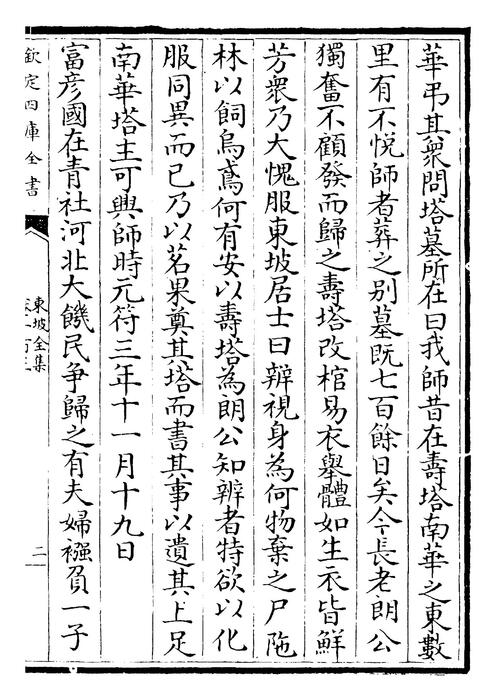 華弔其衆問塔墓所在曰我師昔在壽塔南華之東數
里有不悅師者葬之别墓既七百餘日矣今長老朗公
獨奮不顧發而歸之壽塔改棺易衣舉體如生衣皆鮮
芳衆乃大愧服東坡居士曰辨視身為何物棄之尸陁
林以飼烏鳶何有安以壽塔為朗公知辨者特欲以化
服同異而已乃以茗果奠其塔而書其事以遺其上足
南華塔主可興師時元符三年十一月十九日
富彦國在青社河北大饑民争歸之有夫婦襁負一子
欽定四庫全書
東坡全集
二